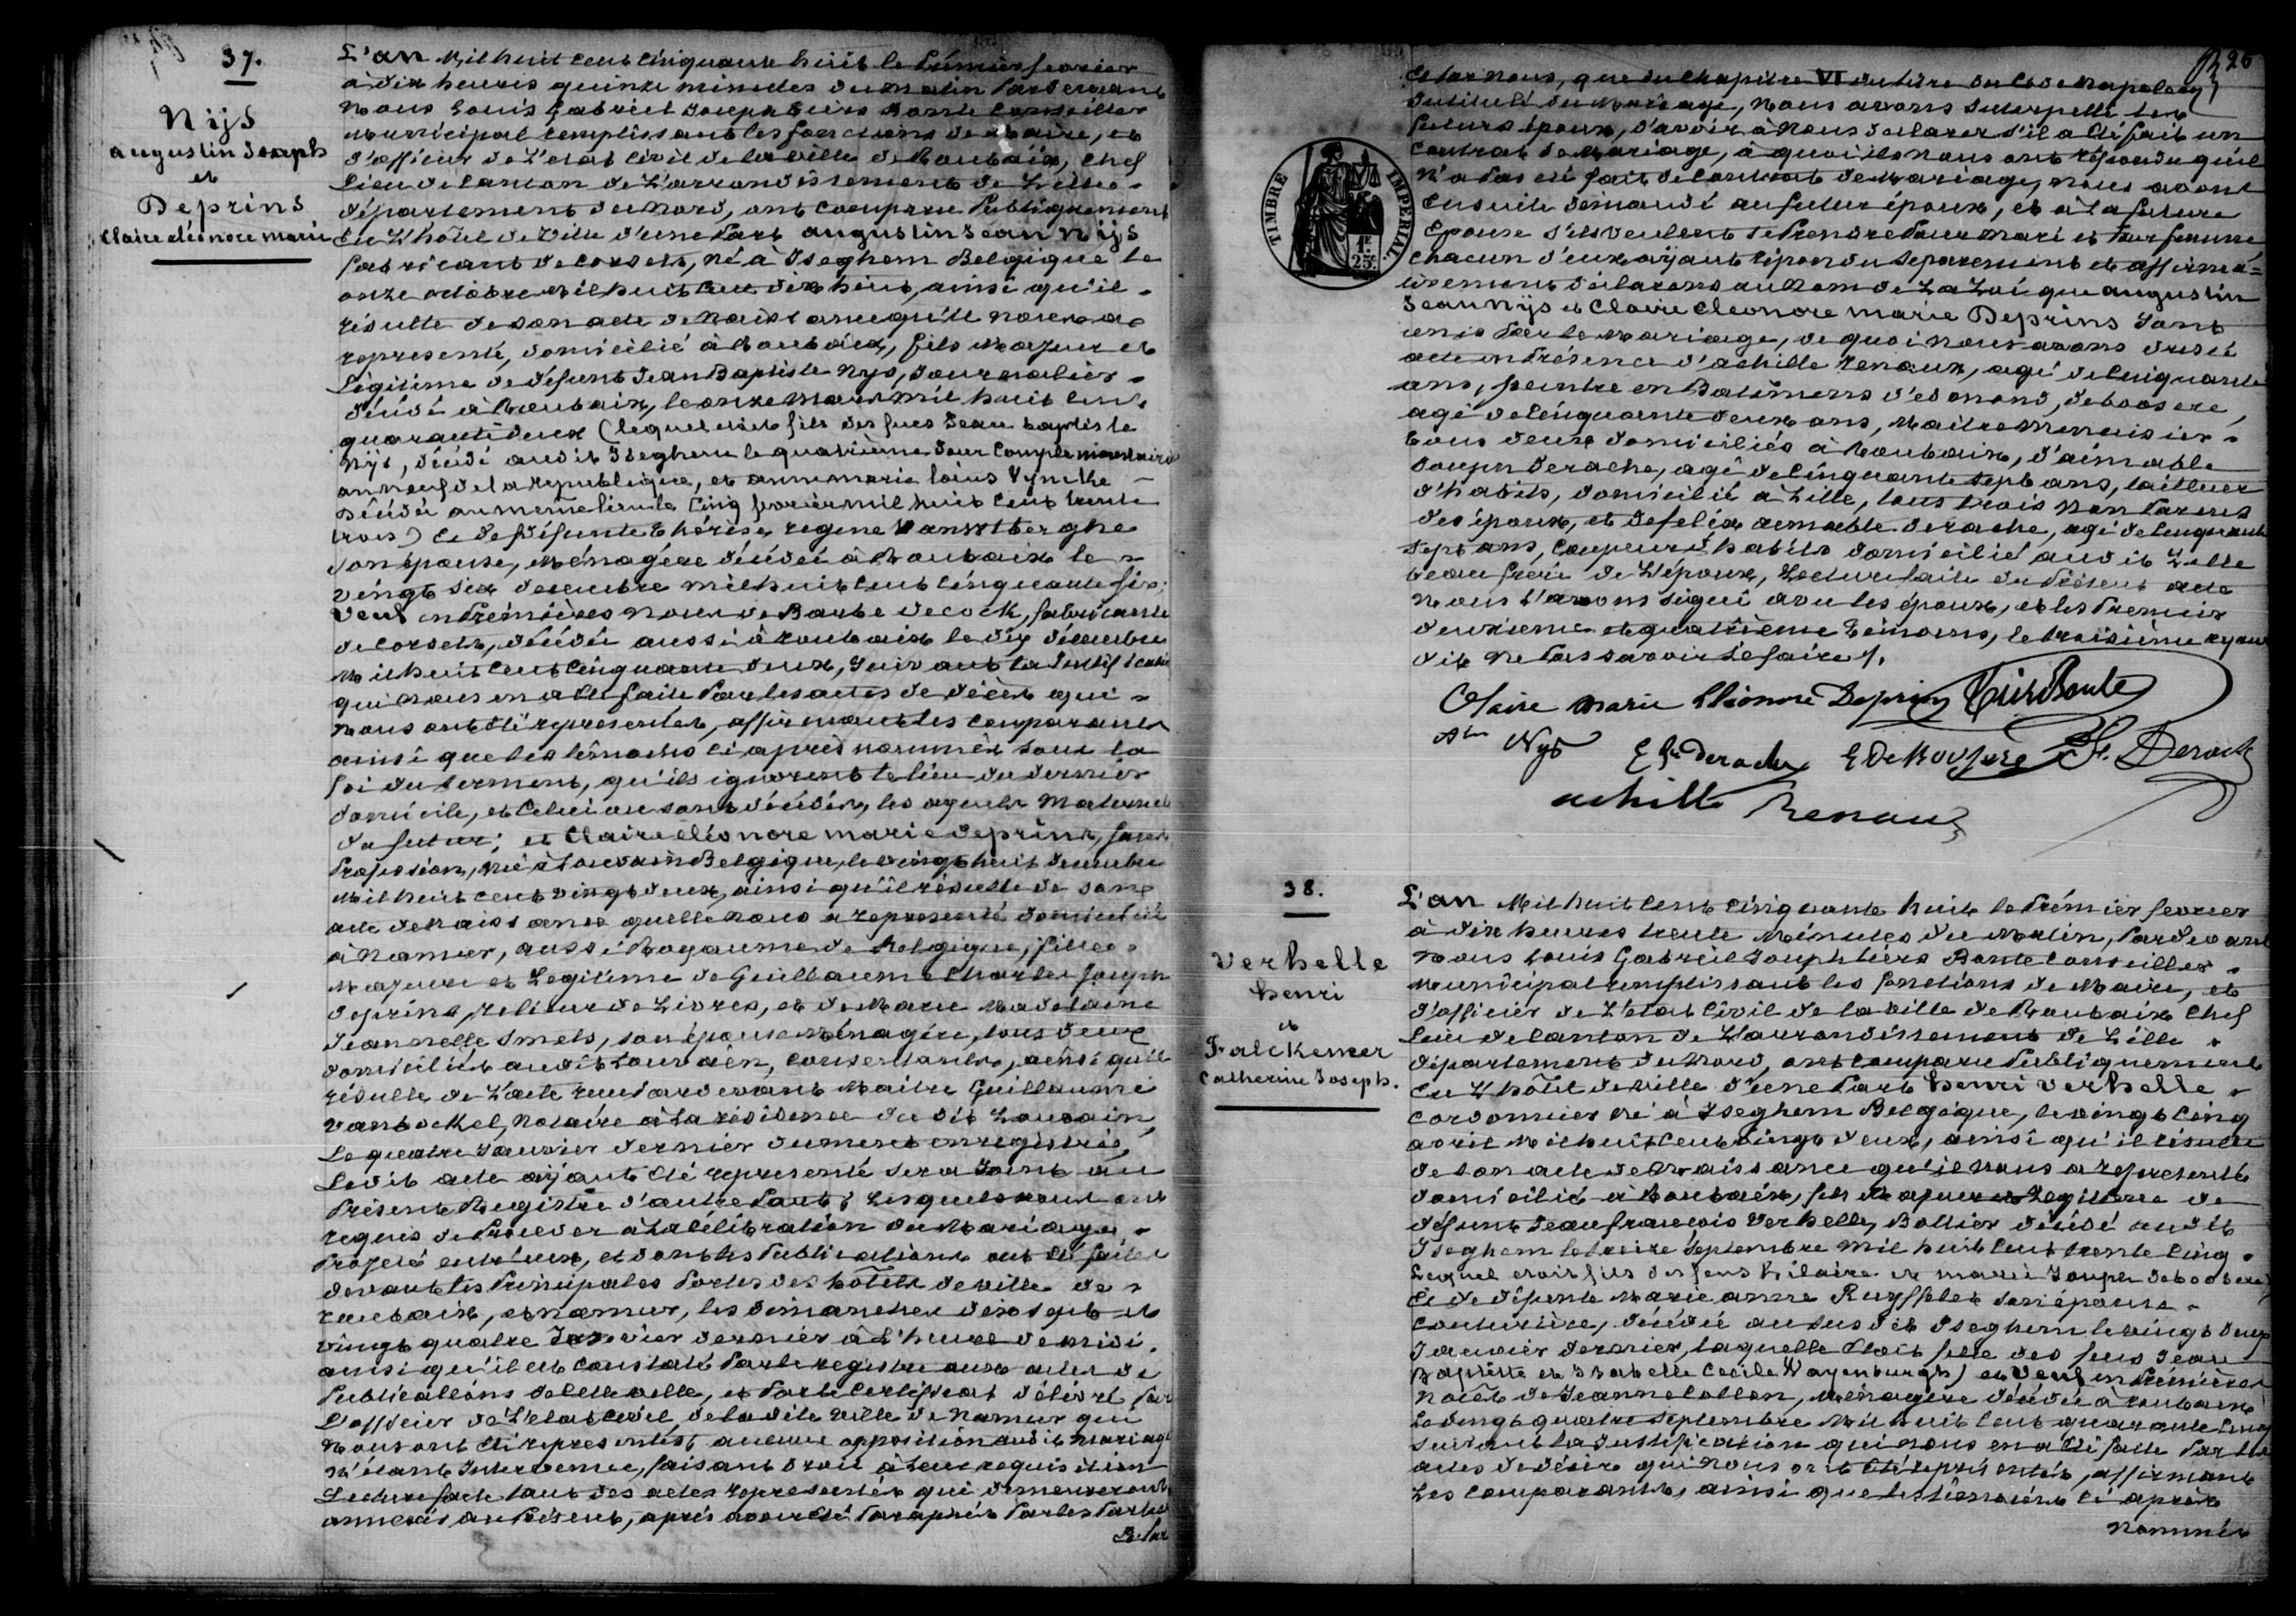 37.
Nijs
augustin Joseph
et
Deprins
Claire eléonore marie
L'an Mil huit cent cinquante huit le Prémier fevrier
à dix heures quinze minutes du matin Pardevant
Nous Louis Gabriel Joseph Liévs Bonte Conseiller
Municipal remplissant les fonctions de Maire, et
d'officier de L'etat Civil de la ville de Roubaix, Chef
Lieu de Canton de L'arrondissement de Lille
département du Nord, ont comparu Publiquement
En L'hôtel de Ville d'une Part augustin Jean Nijs
fabricant de corsets, né à Iseghem Belgique le
onze octobre Mil huit Cent dix huit, ainsi qu'il
résulte de son acte de Naissance qu'il nous a
representé, domicilié à Roubaix, fils Majeur et
Légitime de défunt Jean Baptiste Nys, Journalier
décédé à Roubaix, le onze Mars mil huit cent
quarante deux (lequel etait fils des feus Jean baptiste
Nijs, décédé audit Iseghem le quatrième Jour Complementaire
an neuf de la republique, et anne marie
Décédée au même lieu le Cinq fevrier mil huit Cent trente
trois) Et de Défunte Thérèse regine Vanwtberghe
son épouse, Ménagère décédée à Roubaix le
vingt six decembre mil huit Cent Cinquante six;
Veuf en Prémières Noces de Barbe Decock, fabricante
de Corsets, décédée aussi à roubaix le dix décembre
Mil huit Cent Cinquante deux, Suivant la Justification
qui nous en a été faite Par les actes de décès qui
Nous ont été représentés, affirmant les Comparants
ainsi que les témoins ci après nommés sous la
foi du serment, qu'ils ignorent le lieu du dernier
domicile, et Celui ou sont décédés, les ayeuls Maternels
du futur; et Claire eléonore marie deprins, sans
Profession, née à Louvain Belgique, le vingt huit decembre
Mil huit cent vingt deux, ainsi qu'il résulte de son
acte de Naissance quelle nous a représenté domiciliée
à Namur, aussi Royaume de Belgique, fille
Majeure et Legitime de Guillaume Charles Joseph
deprins, relieur de Livres, et de Marie Madelaine
Jeannette Smets, son épouse Ménagère, tous deux
domiciliés audit Louvain, consentants, ainsi qu'il
résulte de L'acte reçu Pardevant Maître Guillaume
Vanbockel, Notaire à la résidence du dit Louvain,
Le quatre Janvier dernier dument enregistré,
Ledit acte ayant été representé sera Joint au
Présent Registre d'autre Part; Lesquels nous ont
requis de Proceder à La Célébration du Mariage
Projeté entr'eux, et dont les Publications ont été faites
devant les Principales Portes des hôtels de ville de
roubaix, et namur, les dimanches dix sept et
vingt quatre Janvier dernier à L'heure de midi,
ainsi qu'il est Constaté Par le registre aux actes de
Publications de Cette ville, et Par le Certificat délivré Par
L'officier de L'etat Civil de ladite ville de Namur qui
Nous ont été représentés aucune opposition audit Mariage
N'étant Intervenue, faisant droit à Leur requisition
Lecture faite tant des actes représentés qui demeureront
annexés au Présent, après avoir été Paraphés Par les Parties
Et Par
26
Et Par Nous, que du Chapitre VI du titre du Code Napoléon
Intitulé du Mariage, Nous avons Interpellé les
futurs époux, d'avoir à Nous déclarer s'il a été fait un
Contrat de Mariage, à quoi ils nous ont répondu qu'il
N'a Pas été fait de Contrat de Mariage, Nous avons
Ensuite demandé au futur époux, et à La future
Epouse s'ils veulent se Prendre Pour Mari et Pour femme,
Chacun d'eux ayant répondu séparement et affirma=
tivement déclarons au Nom de La Loi que augustin
Jean Nijs et Claire eleonore marie Deprins sont
unis Par le Mariage, de quoi nous avons dressé
acte en Présence d'achille renaux, agé de Cinquante
ans, Peintre en Batiments d'edmond, deboosere,
agé de Cinquante deux ans, Maitre Menuisier
tous deux domiciliés à Roubaix, d'aimable
Joseph Derache, agé de Cinquante sept ans, tailleur
d'habits, domicilié à Lille, tous trois Non Parens
des époux, et de felix aimable derache, agé de Cinquante
sept ans, Coupeur d'habits domicilié audit Lille
beau frère de L'époux, Lecture faite du Présent acte
Nous l'avons signé avec les époux, et les Premier
deuxième et quatrième témoins, le troisième ayant
dit Ne Pas savoir Le faire /.
Claire Marie Eléonore Deprins
Nys
achille Renaux
TIMBRE IMPERIAL
1F.
25C.
38.
Verhelle
henri
et
Falckemer
Catherine Joseph.
L'an Mil huit Cent Cinquante huit le Prémier fevrier
à dix heures trente Minutes du Matin, Pardevant
Nous Louis Gabriel Joseph Liévs Bonte Conseiller
Municipal remplissant les fonctions de Maire, et
d'officier de L'etat Civil de la ville de Roubaix Chef
Lieu de Canton de L'arrondissement de Lille
département du Nord, ont comparu Publiquement
En L'hôtel de Ville d'une Part henri verhelle
Cordonnier né à Iseghem Belgique, le vingt Cinq
avril Mil huit Cent vingt deux, ainsi qu'il résulte
de son acte de Naissance qu'il nous a representé
domicilié à Roubaix, fils Majeur et Legitime de
défunt Jean francois Verhelle, Bottier décédé audit
Iseghem le treize Septembre Mil huit Cent trente Cinq
Lequel etait fils des feus hilaire et marie Joseph
Et de défunte Marie anne Ruyffelet son épouse
Couturière, décédée au susdit Iseghem le vingt deux
Janvier dernier, laquelle était fille des feus Jean
Baptiste et Isabelle Cecile Wayenburgh) et Veuf en Prémières
Noces de Jeanne Collon, Ménagère décédée à roubaix
Le vingt quatre septembre Mil huit Cent quarante Cinq
suivant la Justification qui nous en a été faite Par les
actes de décès qui Nous ont été représentés, affirmant
Les Comparants, ainsi que les témoins ci après
nommés